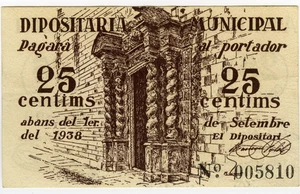 DIPOSITARIA MUNICIPAL
Pagarà al portador
25 25
centims centims
abans del 1er. de Setembre
del 1938 El Dipositari
Nº 005810